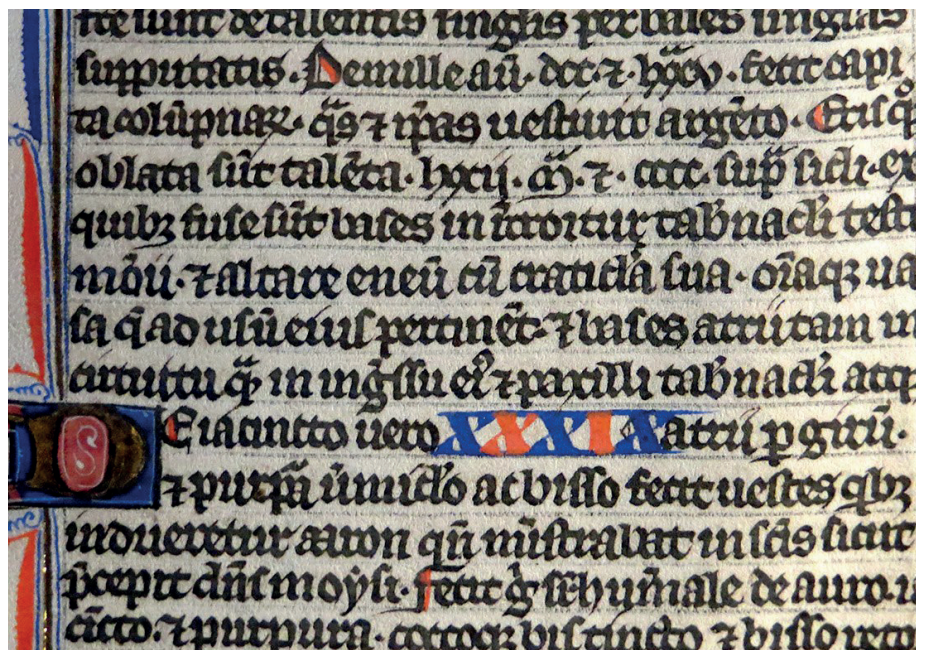 detalentis singlis per bases singlas
supputatis. De mille aū. dcc. ⁊ lxxv. fecit capi
ta colūpnaꝝ. q̄s ⁊ ip̄as uestiuit argēto. Eris qͦ
oblata sūt talēta. lxxij. m̄. ⁊. cccc. sup̄ sicli. ex
quibꝫ fuse sūt bases in ītroitu tab̄nacl̄i testi
mōii. ⁊ altare eneū cū craticl̄a sua. oīaqꝫ ua
sa q̄ ad usū eius pertinēt. ⁊ bases atrii tam in
circuitu q̄ in inḡssu eiꝰ ⁊ paxilli tab̄nacl̄i atq
E iacincto uero XXXIX atrii ꝑ girū.
⁊ purp̄a ūmicl̄o ac bisso fecit uestes qͥbꝫ
indueretur aaron qn̄ mīstrabat in sc̄is sicut
p̄cepit dn̄s moysi. fecit gͦ de auro.
cīcto. ⁊ purpura. coccoqꝫ bis tincto ⁊ bisso reto